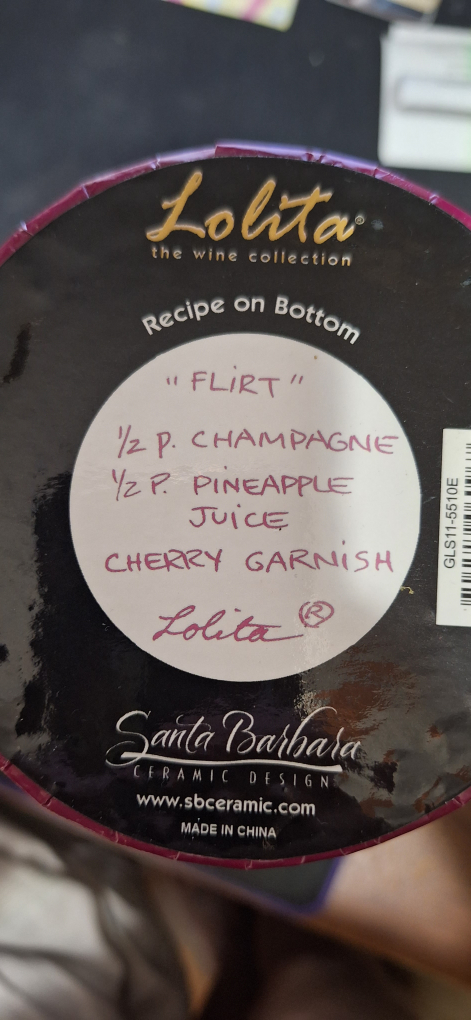 Lolita®
the wine collection
Recipe on Bottom
"FLiRT"
1/2 P. CHAMPAGNE
1/2 P. PiNEAPPLE
JUiCE
CHERRY GARNiSH
Lolita ®
GLS11-5510E
Santa Barbara
CERAMIC DESIGN
www.sbceramic.com
MADE IN CHINA